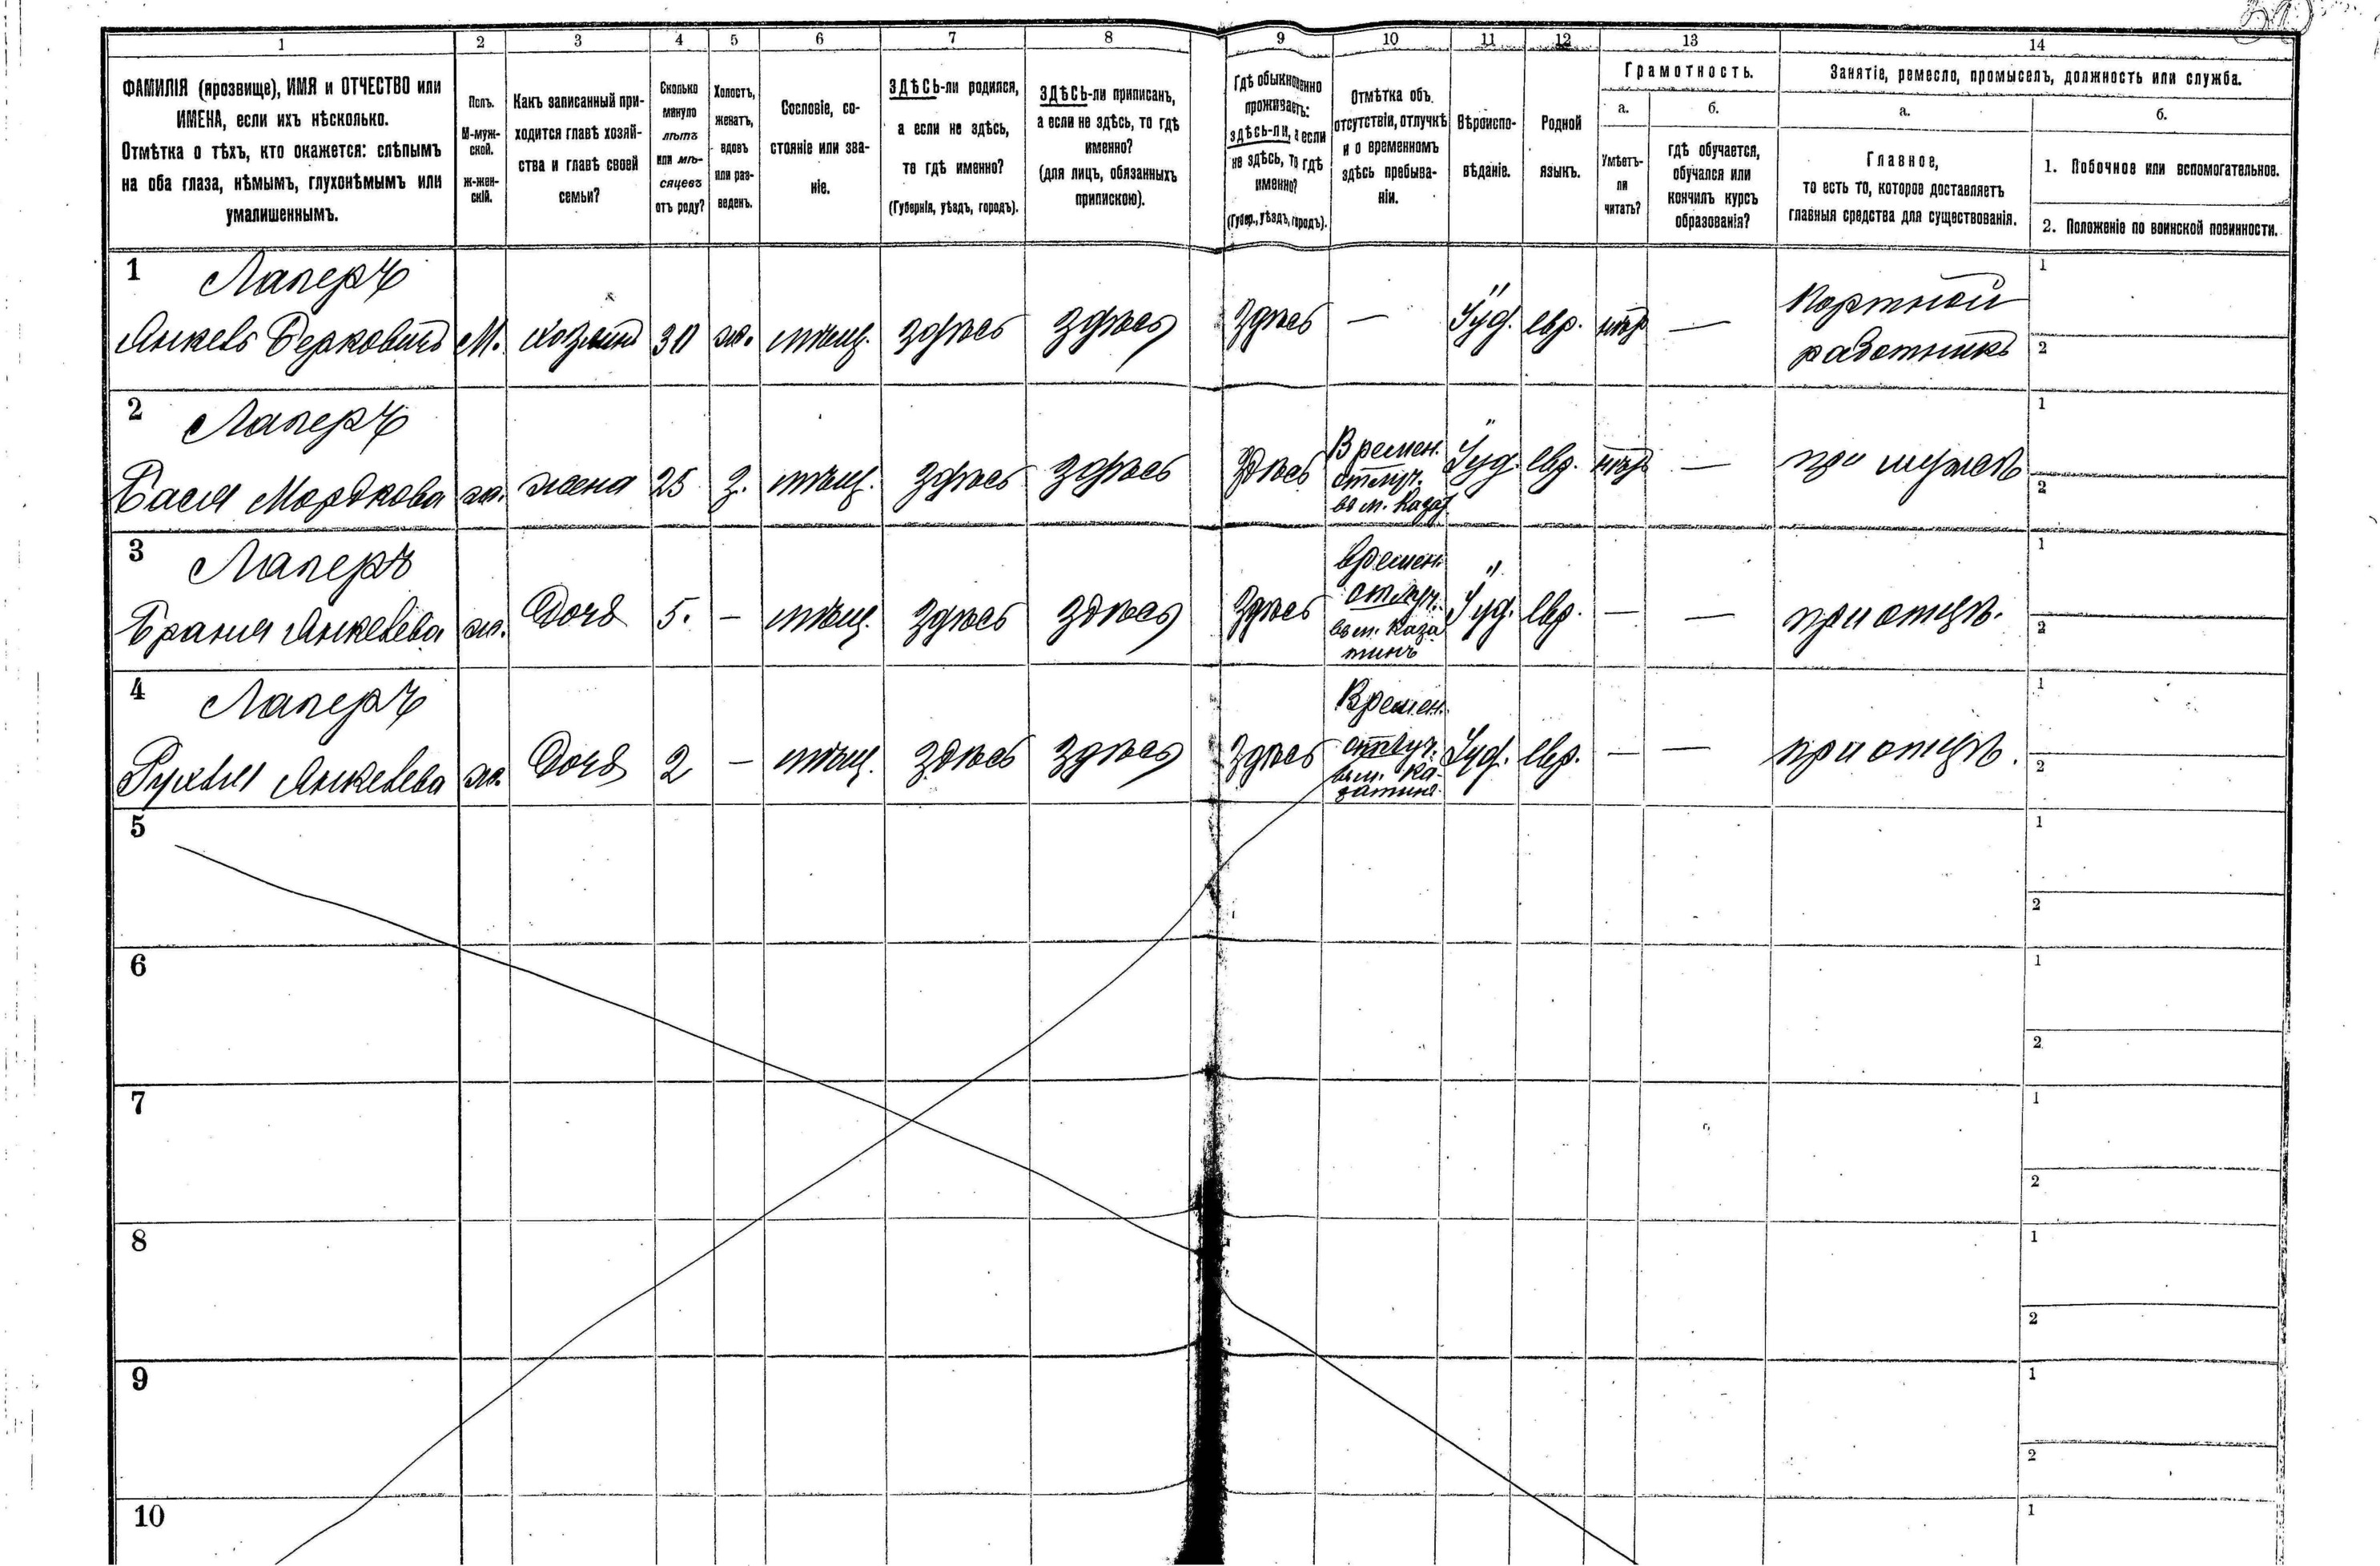 1 2 3 4 5 6 7 8 9 10 11 12 13 14
ФАМИЛІЯ (прозвище), ИМЯ и ОТЧЕСТВО или
ИМЕНА, если ихъ нѣсколько.
Отмѣтка о тѣхъ, кто окажется: слѣпымъ
на оба глаза, нѣмымъ, глухонѣмымъ или
умалишеннымъ.
Полъ.
М-муж-
ской.
Ж-жен-
скій.
Какъ записанный при-
ходится главѣ хозяй-
ства и главѣ своей
семьи?
Сколько
минуло
лѣтъ
или мѣ-
сяцевъ
отъ роду?
Холостъ,
женатъ,
вдовъ
или раз-
веденъ.
Сословіе, со-
стояніе или зва-
ніе.
ЗДѢСЬ-ли родился,
а если не здѣсь,
то гдѣ именно?
(Губернія, уѣздъ, городъ).
ЗДѢСЬ-ли приписанъ,
а если не здѣсь, то гдѣ
именно?
(для лицъ, обязанныхъ
припискою).
Гдѣ обыкновенно
проживаетъ:
здѣсь-ли, а если
не здѣсь, то гдѣ
именно?
(Губер., уѣздъ, городъ).
Отмѣтка объ
отсутствіи, отлучкѣ
и о временномъ
здѣсь пребыва-
ніи.
Вѣроиспо-
вѣданіе.
Родной
языкъ.
Грамотность.
а.
Умѣетъ-
ли
читать?
б.
гдѣ обучается,
обучался или
кончилъ курсъ
образованія?
Занятіе, ремесло, промыселъ, должность или служба.
а.
Главное,
то есть то, которое доставляетъ
главныя средства для существованія.
б.
1. Побочное или вспомогательное.
2. Положеніе по воинской повинности.
1 Лаперъ
Янкевъ Берковичъ М. хозяинъ 30 ж. мѣщ. здѣсь здѣсь здѣсь — Іуд. евр. нѣтъ — Портной
работникъ
1
2
2 Лаперъ
Бася Мордкова ж. жена 25 з. мѣщ. здѣсь здѣсь здѣсь Времен.
отлуч.
въ м. Казат
Іуд. евр. нѣтъ — при мужѣ
1
2
3 Лаперъ
Браня Янкевева ж. Дочь 5. — мѣщ. здѣсь здѣсь здѣсь Времен.
отлуч.
въ м. Каза
тинъ
Іуд. евр. — — при отцѣ.
1
2
4 Лаперъ
Рухля Янкевева ж. Дочь 2 — мѣщ. здѣсь здѣсь здѣсь Времен.
отлуч.
въ м. Ка-
затинъ
Іуд. евр. — — при отцѣ.
1
2
5
1
2
6
1
2
7
1
2
8
1
2
9
1
2
10
1